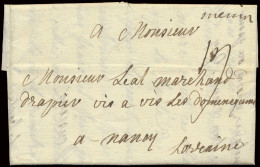 menin
a Monsieur
Monsieur Leal marchand
drapier vis a vis Les domeniquins
a nancy
Lorraine